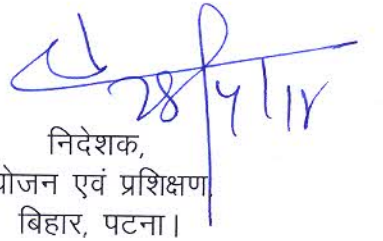 निदेशक,
योजन एवं प्रशिक्षण
बिहार, पटना।